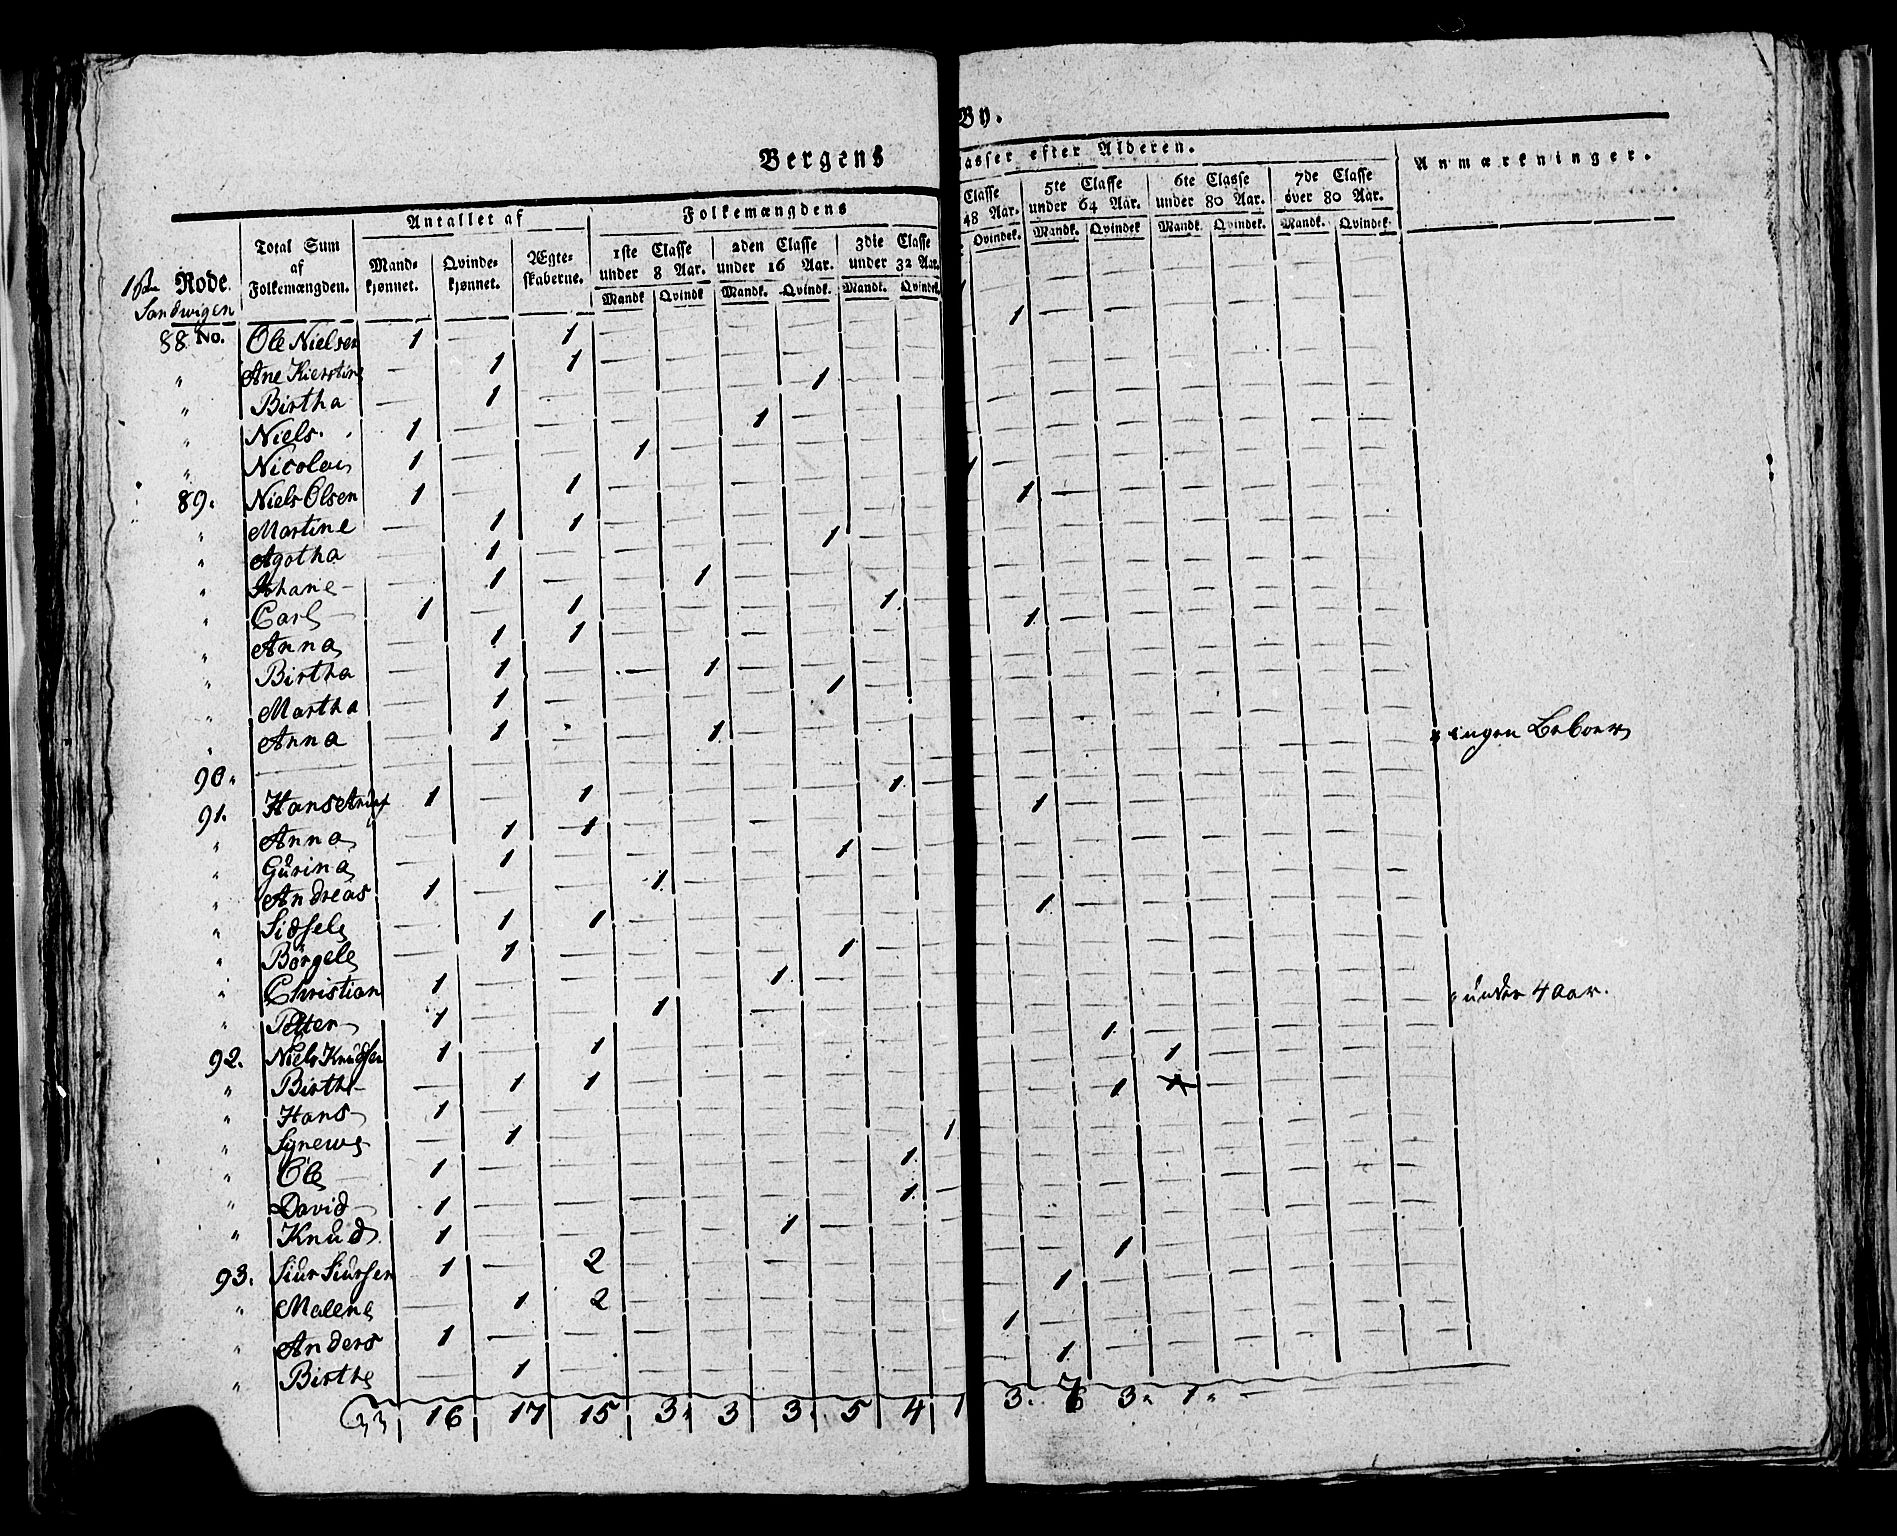 Bergens By.
Antallet af Folkemængdens Classer efter Alderen. Anmærkninger.
Rode. Total Sum af Folkemængden. Mand- kjønnet. Qvinde- kjønnet. Ægte- skaberne. 1ste Classe under 8 Aar. 2den Classe under 16 Aar. 3die Classe under 32 Aar. Classe 48 Aar. 5te Classe under 64 Aar. 6te Classe under 80 Aar. 7de Classe over 80 Aar.
Mandk Qvindk Mandk. Qvindk. Mandk. Qvindek. Qvindek. Mandk. Qvindek Mandk. Qvindek. Mandk. Qvindek.
Sandwigen
88 No. Ole Nielsen 1 — 1
" Ane Kierstine — 1 1 1
" Birtha — 1 — 1
" Niels 1 — — 1
" Nicolai 1 — — 1
89. Niels Olsen 1 — 1 1
" Martine — 1 1 1
" Agotha — 1 — 1
" Johane — 1 — 1
" Carl 1 — 1 1
" Anna — 1 1 1
" Birtha — 1 — 1
" Martha — 1 — 1
" Anna — 1 — 1
90. — " ingen Beboer
91. Hans 1 — 1 1
" Anna — 1 1 1
" Gurina — 1 — 1
" Andreas 1 — — 1
" Sidsele — 1 1 1
" Børgele — 1 — 1
" Christian 1 — — 1
" Petter 1 — — 1 " under 4 Aar.
92. Niels Knudsen 1 — 1 1
" Birthe — 1 1 1
" Hans 1 — — 1
" Synewe — 1 — 1
" Ole 1 — — 1
" David 1 — — 1
" Knud 1 — — 1
93. Siur Siursen 1 — 2 1
" Malene — 1 2 1
" Anders 1 — — 1
" Birthe — 1 — 1
33 16 17 15 3 3 3 5 4 1 3 7 3 1